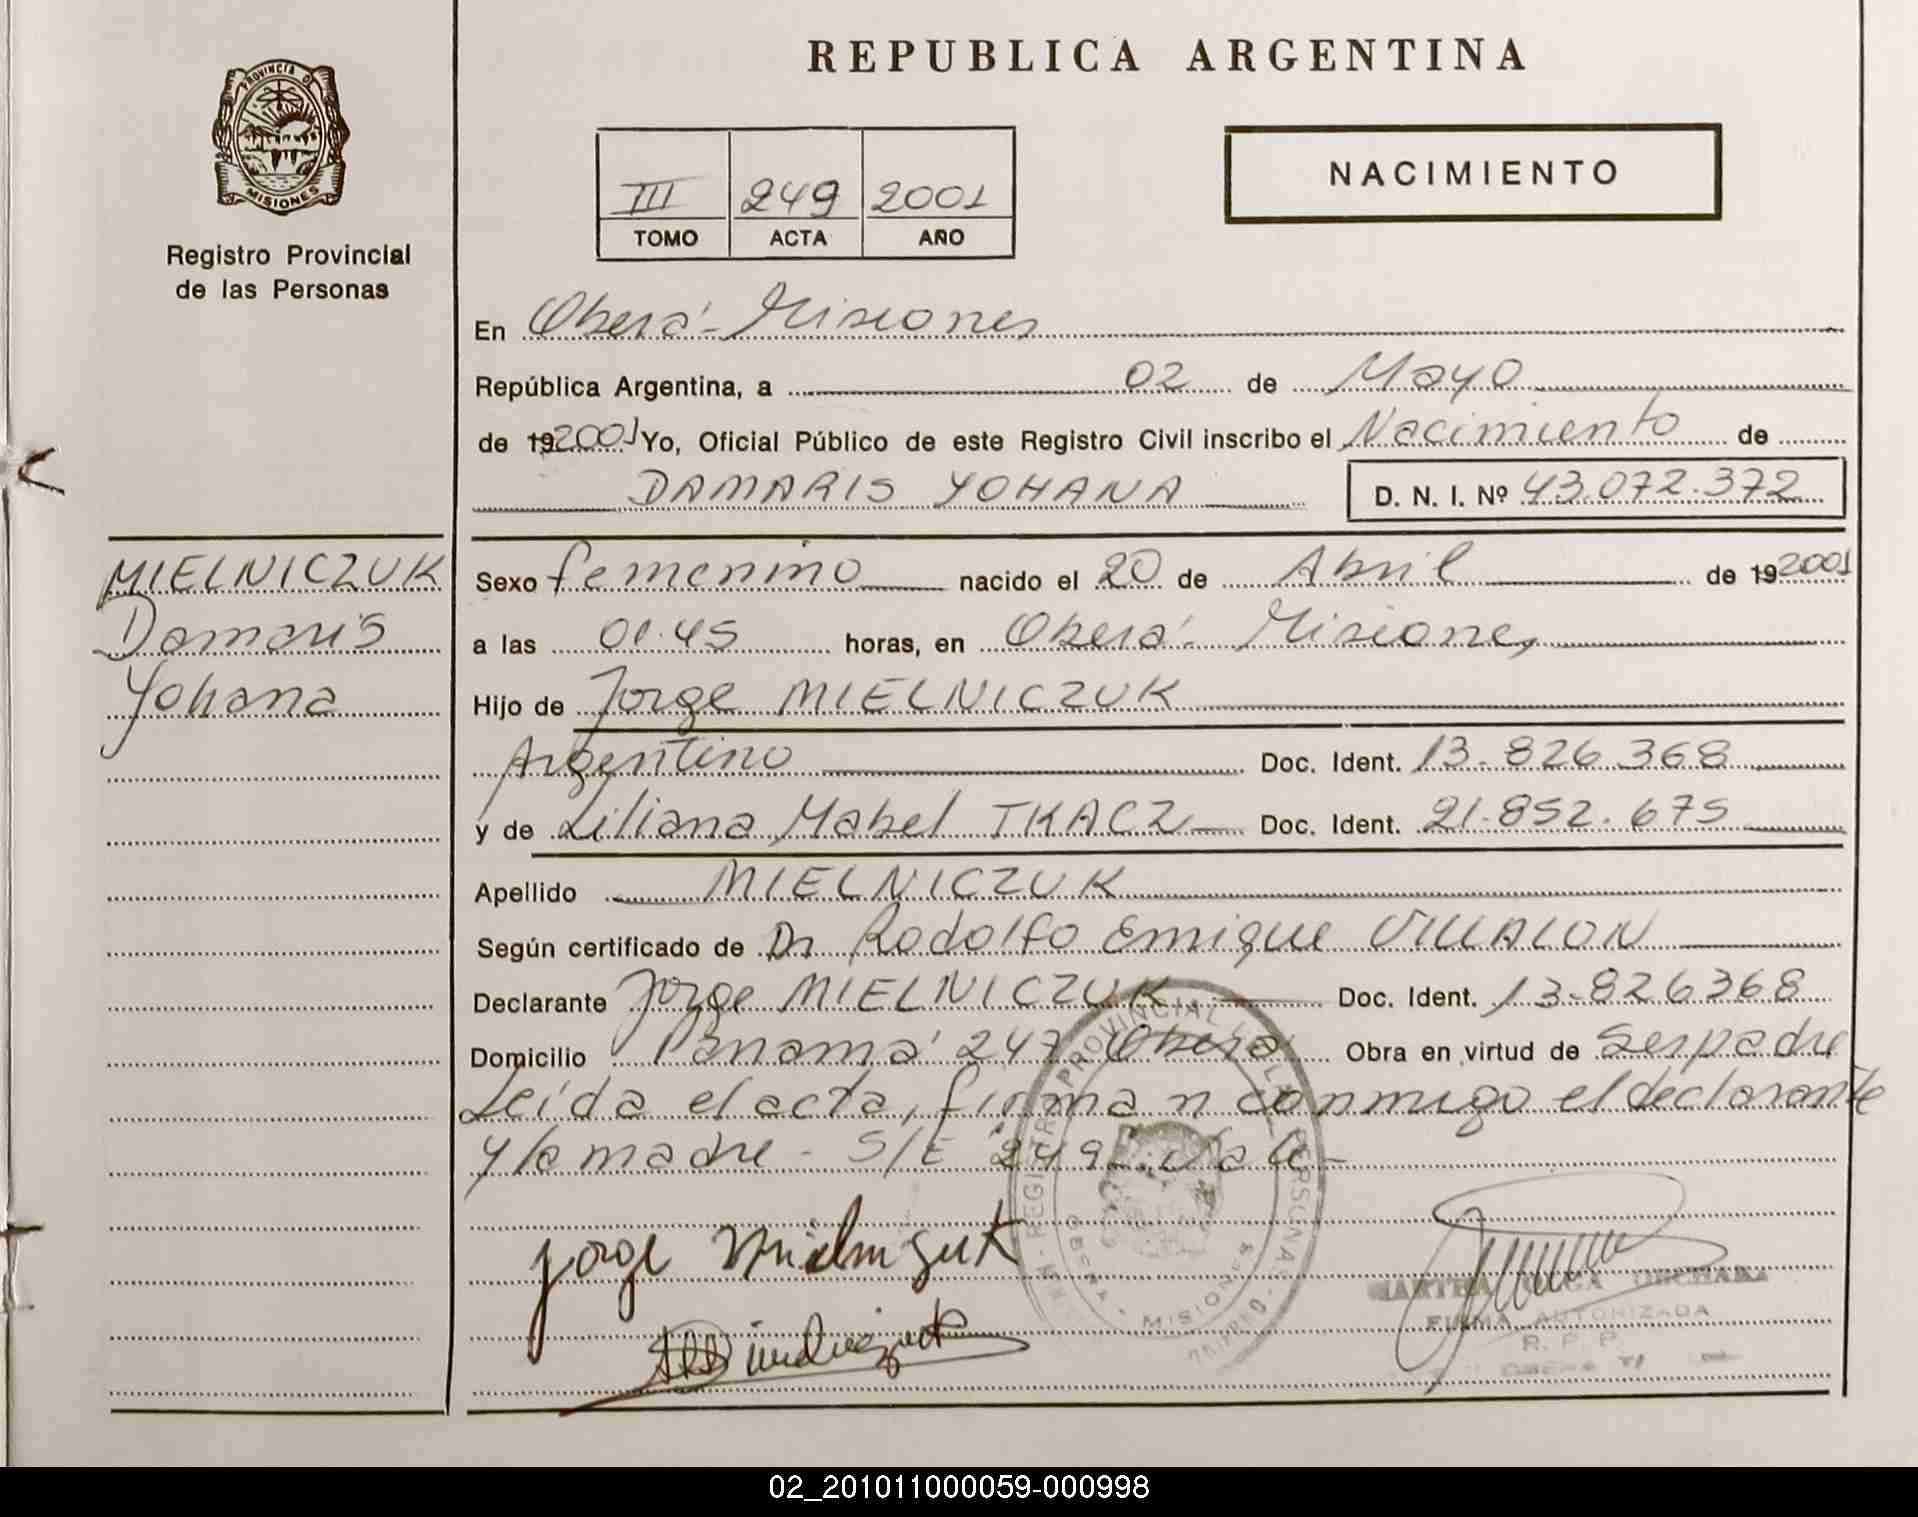 REPUBLICA ARGENTINA
PROVINCIA D
MISIONES
Registro Provincial
de las Personas
III 249 2001
TOMO ACTA AÑO
NACIMIENTO
En Oberá - Misiones
República Argentina, a 02 de Mayo
de 192001 Yo, Oficial Público de este Registro Civil inscribo el Nacimiento de
DAMARIS YOHANA D. N. I. Nº 43.072.372
MIELNICZUK
Damaris
Yohana
Sexo femenino nacido el 20 de Abril de 192001
a las 01.45 horas, en Oberá - Misiones
Hijo de Jorge MIELNICZUK
Argentino Doc. Ident. 13.826.368
y de Liliana Mabel TKACZ Doc. Ident. 21.852.675
Apellido MIELNICZUK
Según certificado de Dr Rodolfo Enrique VILLALON
Declarante Jorge MIELNICZUK Doc. Ident. 13.826368
Domicilio Panamá 247 Oberá Obra en virtud de ser padre
Leída el acta, firman conmigo el declarante
y la madre - S/E 249 Vale -
REGISTRO PROVINCIAL DE LAS PERSONAS
OBERA - MISIONES
Jorge Mielniczuk
MARTHA OLGA
FIRMA AUTORIZADA
R. P. P.
OBERA
02_201011000059-000998